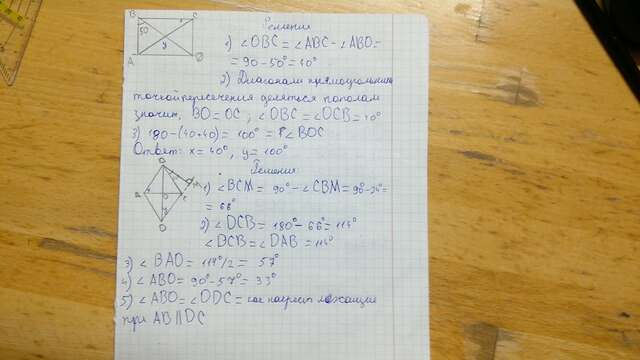 B C
50
y
A D
Решения
1) ∠OBC = ∠ABC - ∠ABO =
= 90 - 50° = 40°
2) Диагонали прямоугольника
точкой пересечения деляться пополам
значит, BO = OC ; ∠OBC = ∠OCB = 40°
3) 180 - (40+40) = 100° = ∠BOC
Ответ: x = 40°, y = 100°
Решения:
1) ∠BCM = 90° - ∠CBM = 90 - 24° =
= 66°
2) ∠DCB = 180° - 66° = 114°
∠DCB = ∠DAB = 114°
3) ∠BAO = 114°/2 = 57°
4) ∠ABO = 90° - 57° = 33°
5) ∠ABO = ∠ODC = как накрест лежащие
при AB || DC